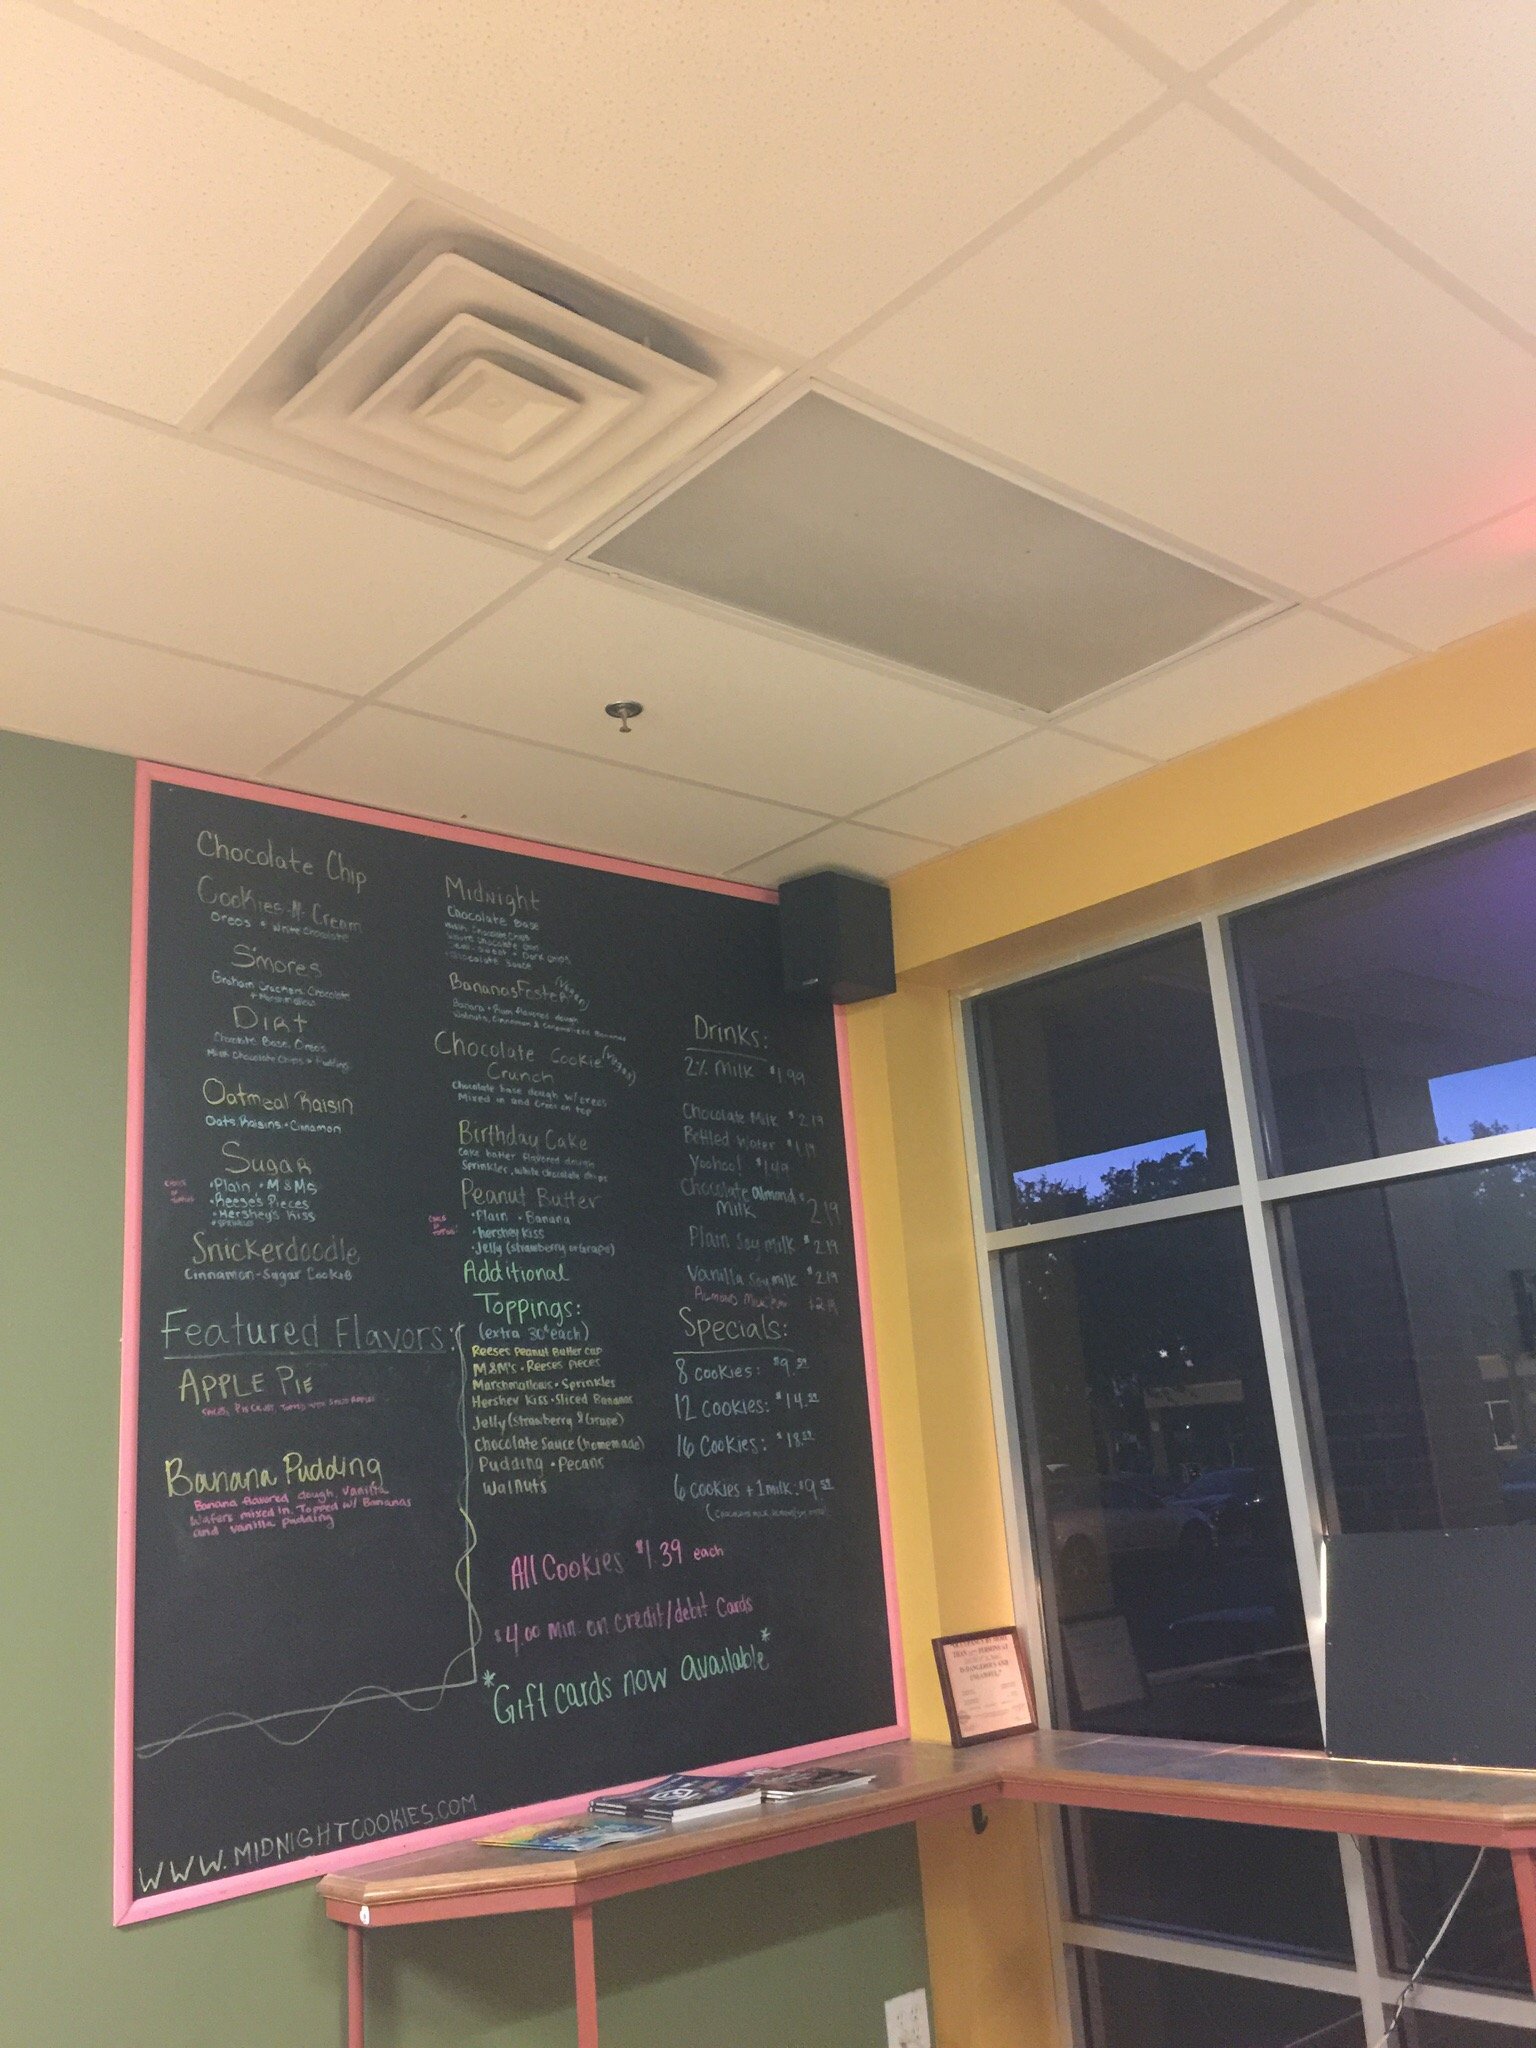 Chocolate Chip
Cookies-N-Cream
Oreo's + White Chocolate
S'mores
Graham Crackers, Chocolate
+ Marshmallow
Dirt
Chocolate Base, Oreos
Milk Chocolate Chips + Pudding
Oatmeal Raisin
Oats Raisins + Cinnamon
Sugar
• Plain • M&Ms
• Reese's Pieces
• Hershey's Kiss
• Sprinkles
Snickerdoodle
Cinnamon-Sugar Cookie
Featured Flavors:
Apple Pie
Banana Pudding
Banana flavored dough, Vanilla
Wafers mixed in. Topped w/ Bananas
and vanilla pudding
www.midnightcookies.com
Midnight
Chocolate Base
Chocolate Sauce
Bananas Foster (Vegan)
Banana + Rum flavored dough
Walnuts, Cinnamon & Caramelized Bananas
Chocolate Cookie (Vegan)
Crunch
Chocolate base dough w/ oreos
Mixed in and Oreos on top
Birthday Cake
Cake batter flavored dough
Sprinkles, white chocolate chips
Peanut Butter
• Plain • Banana
• hershey Kiss
• Jelly (strawberry or Grape)
Additional
Toppings:
(extra 30¢ each)
Reeses Peanut Butter cup
M&M's • Reeses pieces
Marshmallows • Sprinkles
Hershey Kiss • Sliced Bananas
Jelly (strawberry & Grape)
Chocolate Sauce (homemade)
Pudding • Pecans
Walnuts
Drinks:
2% Milk $1.99
Chocolate Milk $2.19
Bottled Water $1.19
Yoohoo! $1.49
Chocolate almond $
Milk 2.19
Plain Soy milk $2.19
Vanilla Soy milk $2.19
Almond Milk
Specials:
8 cookies: $9.59
12 cookies: $14.29
16 Cookies: $18.59
6 cookies + 1 milk: $9
All Cookies $1.39 each
$4.00 min. on credit/debit cards
*Gift cards now available*
OCCUPANCY BY MORE
THAN PERSONS
IS DANGEROUS AND
UNLAWFUL